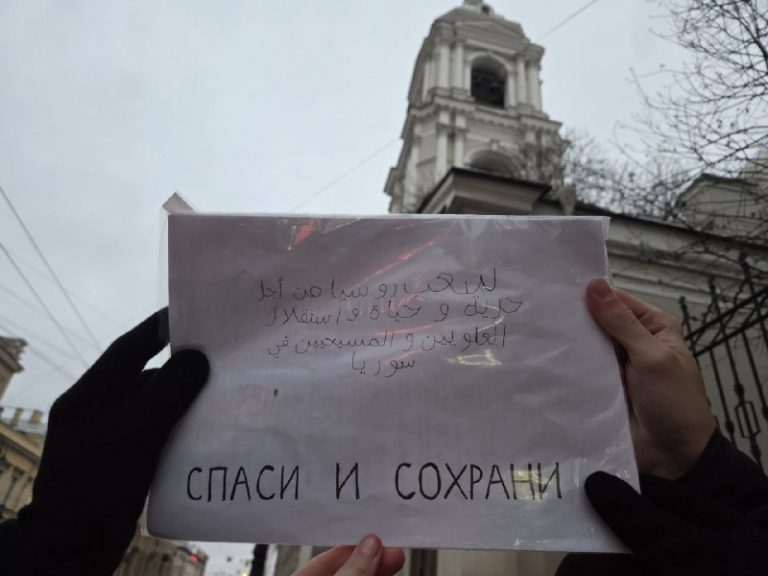 روسيا من أجل
حرية و حياة و استقلال
العلويين و المسيحيين في
سوريا
СПАСИ И СОХРАНИ